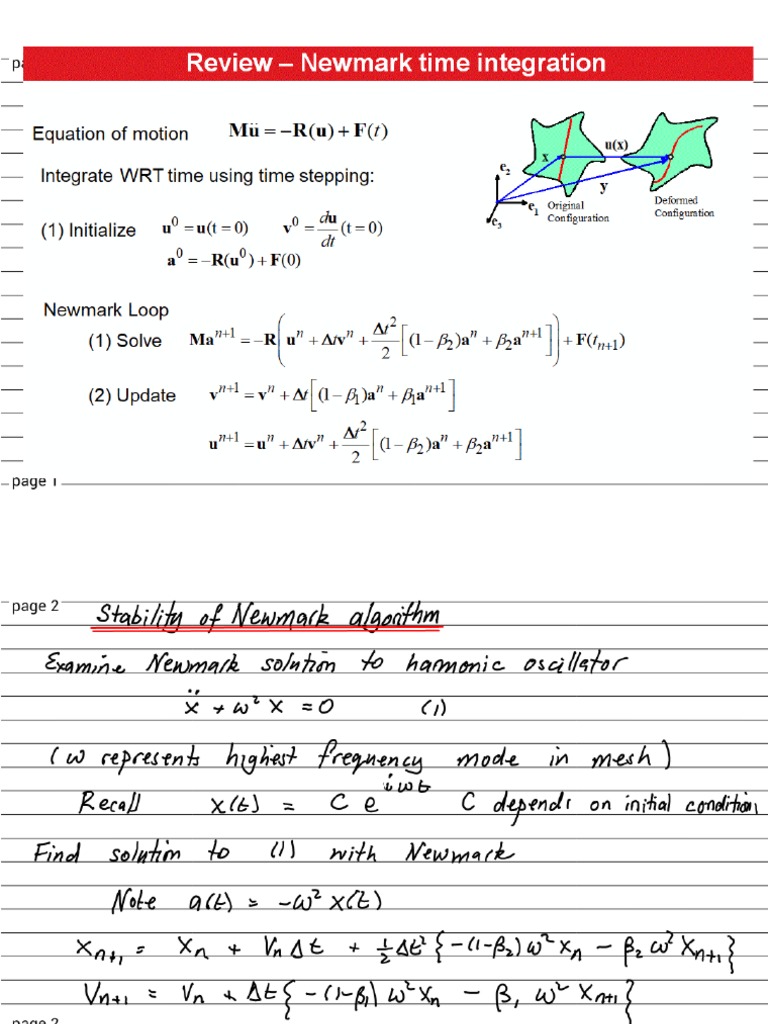 Review – Newmark time integration
Equation of motion Mü = −R(u) + F(t)
Integrate WRT time using time stepping:
(1) Initialize u⁰ = u(t = 0) v⁰ = du/dt (t = 0)
a⁰ = −R(u⁰) + F(0)
x u(x) y
e₂ e₁ e₃
Original Configuration
Deformed Configuration
Newmark Loop
(1) Solve Maⁿ⁺¹ = −R(uⁿ + Δtvⁿ + Δt²/2 [(1 − β₂)aⁿ + β₂aⁿ⁺¹]) + F(tₙ₊₁)
(2) Update vⁿ⁺¹ = vⁿ + Δt[(1 − β₁)aⁿ + β₁aⁿ⁺¹]
uⁿ⁺¹ = uⁿ + Δtvⁿ + Δt²/2 [(1 − β₂)aⁿ + β₂aⁿ⁺¹]
page 1
page 2
Stability of Newmark algorithm
Examine Newmark solution to harmonic oscillator
ẍ + ω² x = 0 (1)
(ω represents highest frequency mode in mesh)
Recall x(t) = C e^{iωt} C depends on initial condition
Find solution to (1) with Newmark
Note a(t) = -ω² x(t)
xₙ₊₁ = xₙ + Vₙ Δt + ½ Δt² {-(1-β₂) ω² xₙ - β₂ ω² xₙ₊₁}
Vₙ₊₁ = Vₙ + Δt {-(1-β₁) ω² xₙ - β₁ ω² xₙ₊₁}